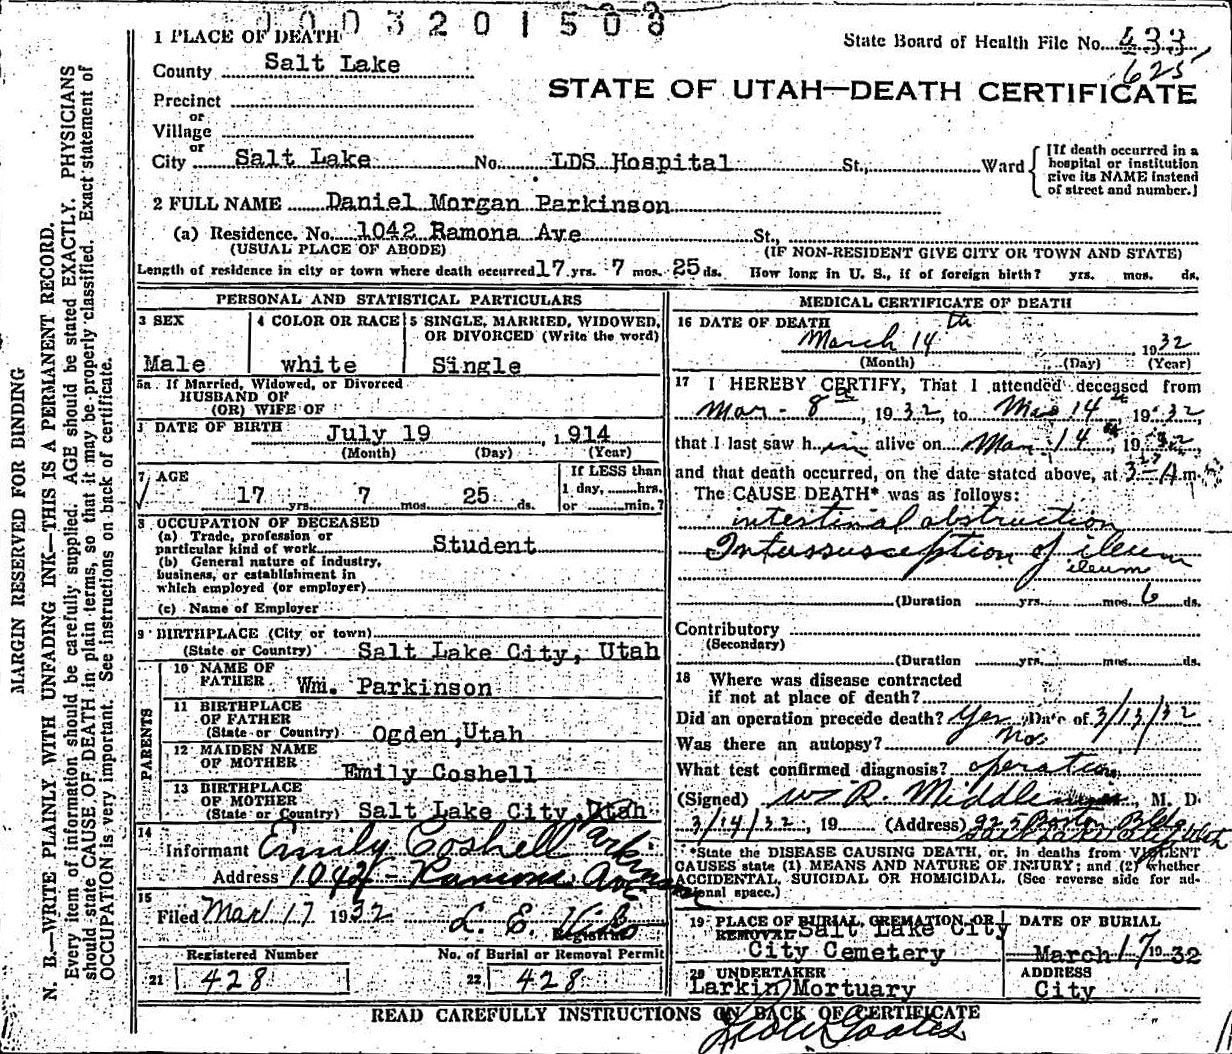 1003201508
1 PLACE OF DEATH
State Board of Health File No. 433
625
County Salt Lake
STATE OF UTAH—DEATH CERTIFICATE
Precinct
or
Village
or
City Salt Lake No. LDS Hospital St., Ward
[If death occurred in a
hospital or institution
give its NAME instead
of street and number.]
2 FULL NAME Daniel Morgan Parkinson
(a) Residence. No. 1042 Ramona Ave St.,
(USUAL PLACE OF ABODE) (IF NON-RESIDENT GIVE CITY OR TOWN AND STATE)
Length of residence in city or town where death occurred 17 yrs. 7 mos. 25 ds. How long in U. S., if of foreign birth? yrs. mos. ds.
PERSONAL AND STATISTICAL PARTICULARS
3 SEX
Male
4 COLOR OR RACE
white
5 SINGLE, MARRIED, WIDOWED,
OR DIVORCED (Write the word)
Single
5a If Married, Widowed, or Divorced
HUSBAND OF
(OR) WIFE OF
DATE OF BIRTH July 19, 1914
(Month) (Day) (Year)
7 AGE
17 yrs. 7 mos. 25 ds.
If LESS than
1 day, hrs.
or min.?
8 OCCUPATION OF DECEASED
(a) Trade, profession or
particular kind of work Student
(b) General nature of industry,
business, or establishment in
which employed (or employer)
(c) Name of Employer
9 BIRTHPLACE (City or town)
(State or Country) Salt Lake City, Utah
PARENTS
10 NAME OF
FATHER Wm. Parkinson
11 BIRTHPLACE
OF FATHER
(State or Country) Ogden, Utah
12 MAIDEN NAME
OF MOTHER
Emily Coshell
13 BIRTHPLACE
OF MOTHER
(State or Country) Salt Lake City, Utah
14
Informant Emily Coshell Parkinson
Address 1042 Ramona Ave
15
Filed Mar 17 1932 L. E.
Registrar
Registered Number
21 428
No. of Burial or Removal Permit
22 428
MEDICAL CERTIFICATE OF DEATH
16 DATE OF DEATH
March 14th 1932
(Month) (Day) (Year)
17 I HEREBY CERTIFY, That I attended deceased from
Mar - 8th, 1932, to Mar 14th 1932,
that I last saw him alive on Mar 14th, 1932
and that death occurred, on the date stated above, at 3 A.m.
The CAUSE DEATH* was as follows:
intestinal obstruction
Intussusception of ileum
ileum
(Duration yrs. mos. 6 ds.
Contributory
(Secondary)
(Duration yrs. mos. ds.
18 Where was disease contracted
if not at place of death?
Did an operation precede death? Yes Date of 3/13/32
Was there an autopsy? No
What test confirmed diagnosis? operation
(Signed) W R. Middleton, M. D.
3/14/32, 19 (Address) 925 Boston Bldg
Salt Lake City Utah
*State the DISEASE CAUSING DEATH, or, in deaths from VIOLENT
CAUSES state (1) MEANS AND NATURE OF INJURY; and (2) whether
ACCIDENTAL, SUICIDAL OR HOMICIDAL. (See reverse side for ad-
ditional space.)
19 PLACE OF BURIAL, CREMATION, OR
REMOVAL Salt Lake City
City Cemetery
DATE OF BURIAL
March 17 1932
20 UNDERTAKER
Larkin Mortuary
ADDRESS
City
READ CAREFULLY INSTRUCTIONS ON BACK OF CERTIFICATE
MARGIN RESERVED FOR BINDING
N. B.—WRITE PLAINLY WITH UNFADING INK—THIS IS A PERMANENT RECORD.
Every item of information should be carefully supplied. AGE should be stated EXACTLY. PHYSICIANS
should state CAUSE OF DEATH in plain terms, so that it may be properly classified. Exact statement of
OCCUPATION is very important. See instructions on back of certificate.